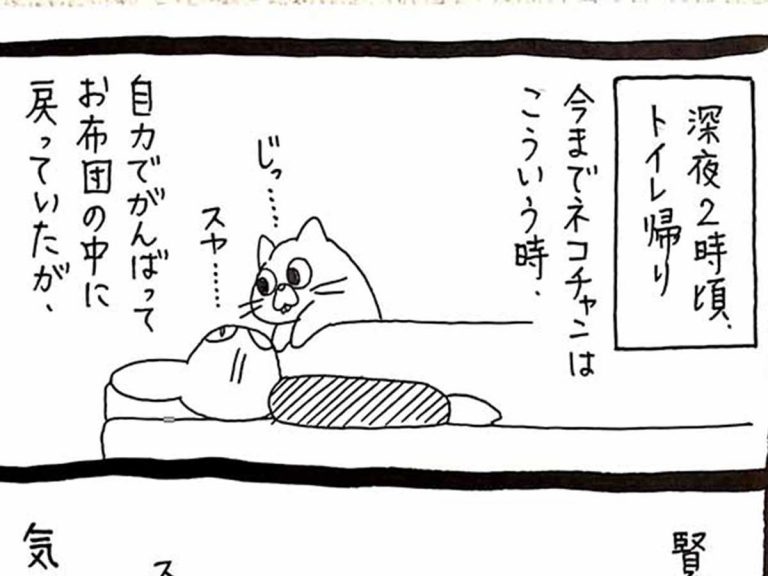 深夜2時頃、
トイレ帰り
今までネコチャンは
こういう時、
じっ……
スヤ……
自力でがんばって
お布団の中に
戻っていたが、
賢
ス
気